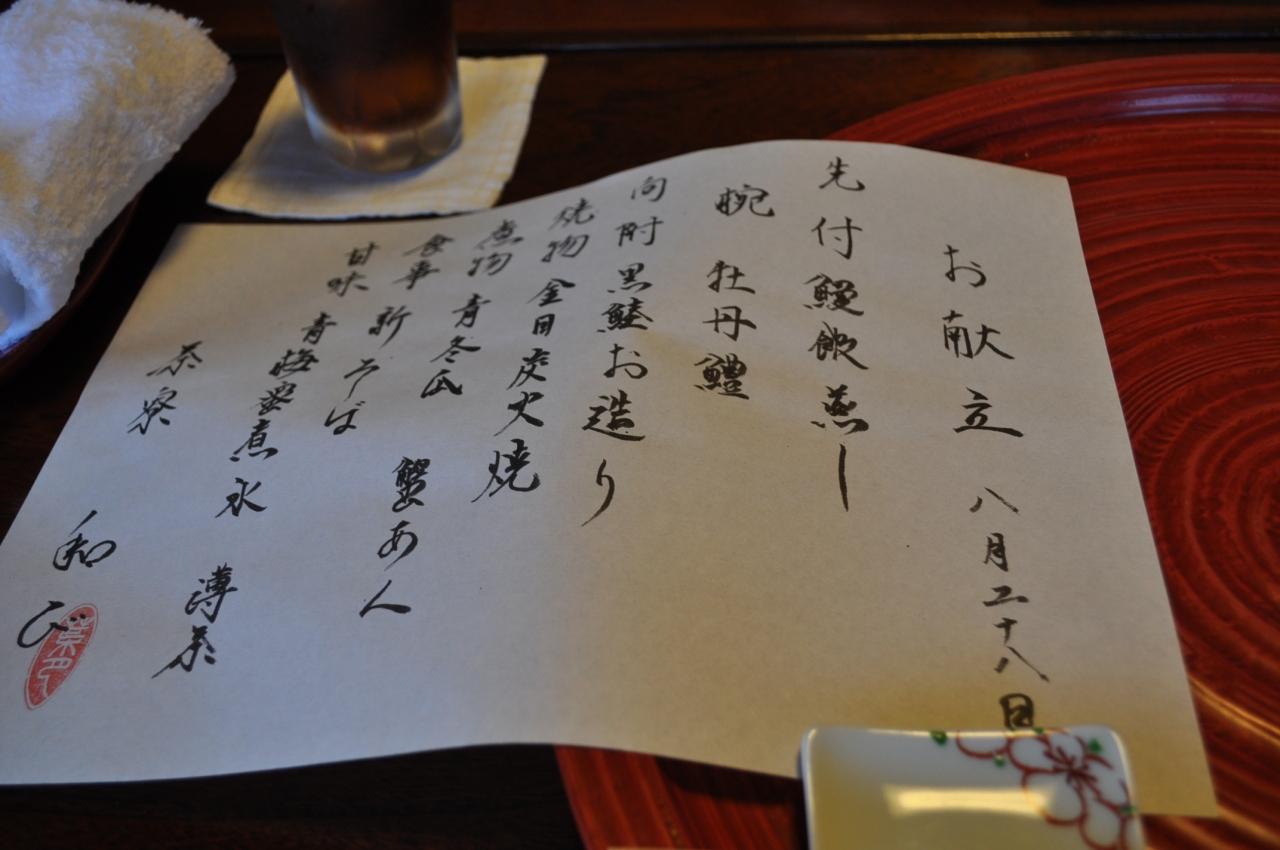 お献立 八月二十八日
先付 鰻飯蒸し
椀 牡丹鱧
向附 黒鮪お造り
焼物 金目炭火焼
煮物 青冬瓜 蟹あん
食事 新そば
甘味 青梅蜜煮氷 薄茶
茶寮 和び